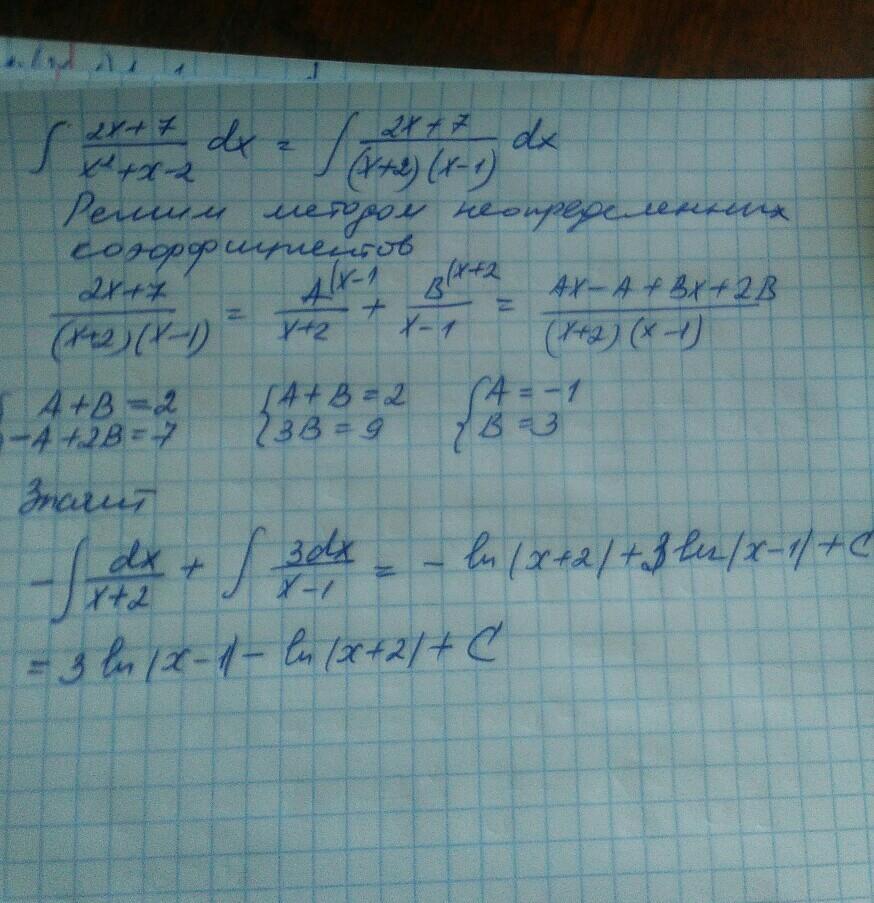 ∫ (2x+7)/(x²+x-2) dx = ∫ (2x+7)/((x+2)(x-1)) dx
Решим методом неопределенных
коэффициентов
(2x+7)/((x+2)(x-1)) = A(x-1/(x+2) + B(x+2/(x-1) = (Ax-A+Bx+2B)/((x+2)(x-1))
{A+B=2 {A+B=2 {A=-1
-A+2B=7 3B=9 B=3
Значит
-∫ dx/(x+2) + ∫ 3dx/(x-1) = -ln|x+2|+3ln|x-1|+C
= 3 ln|x-1|-ln|x+2|+C